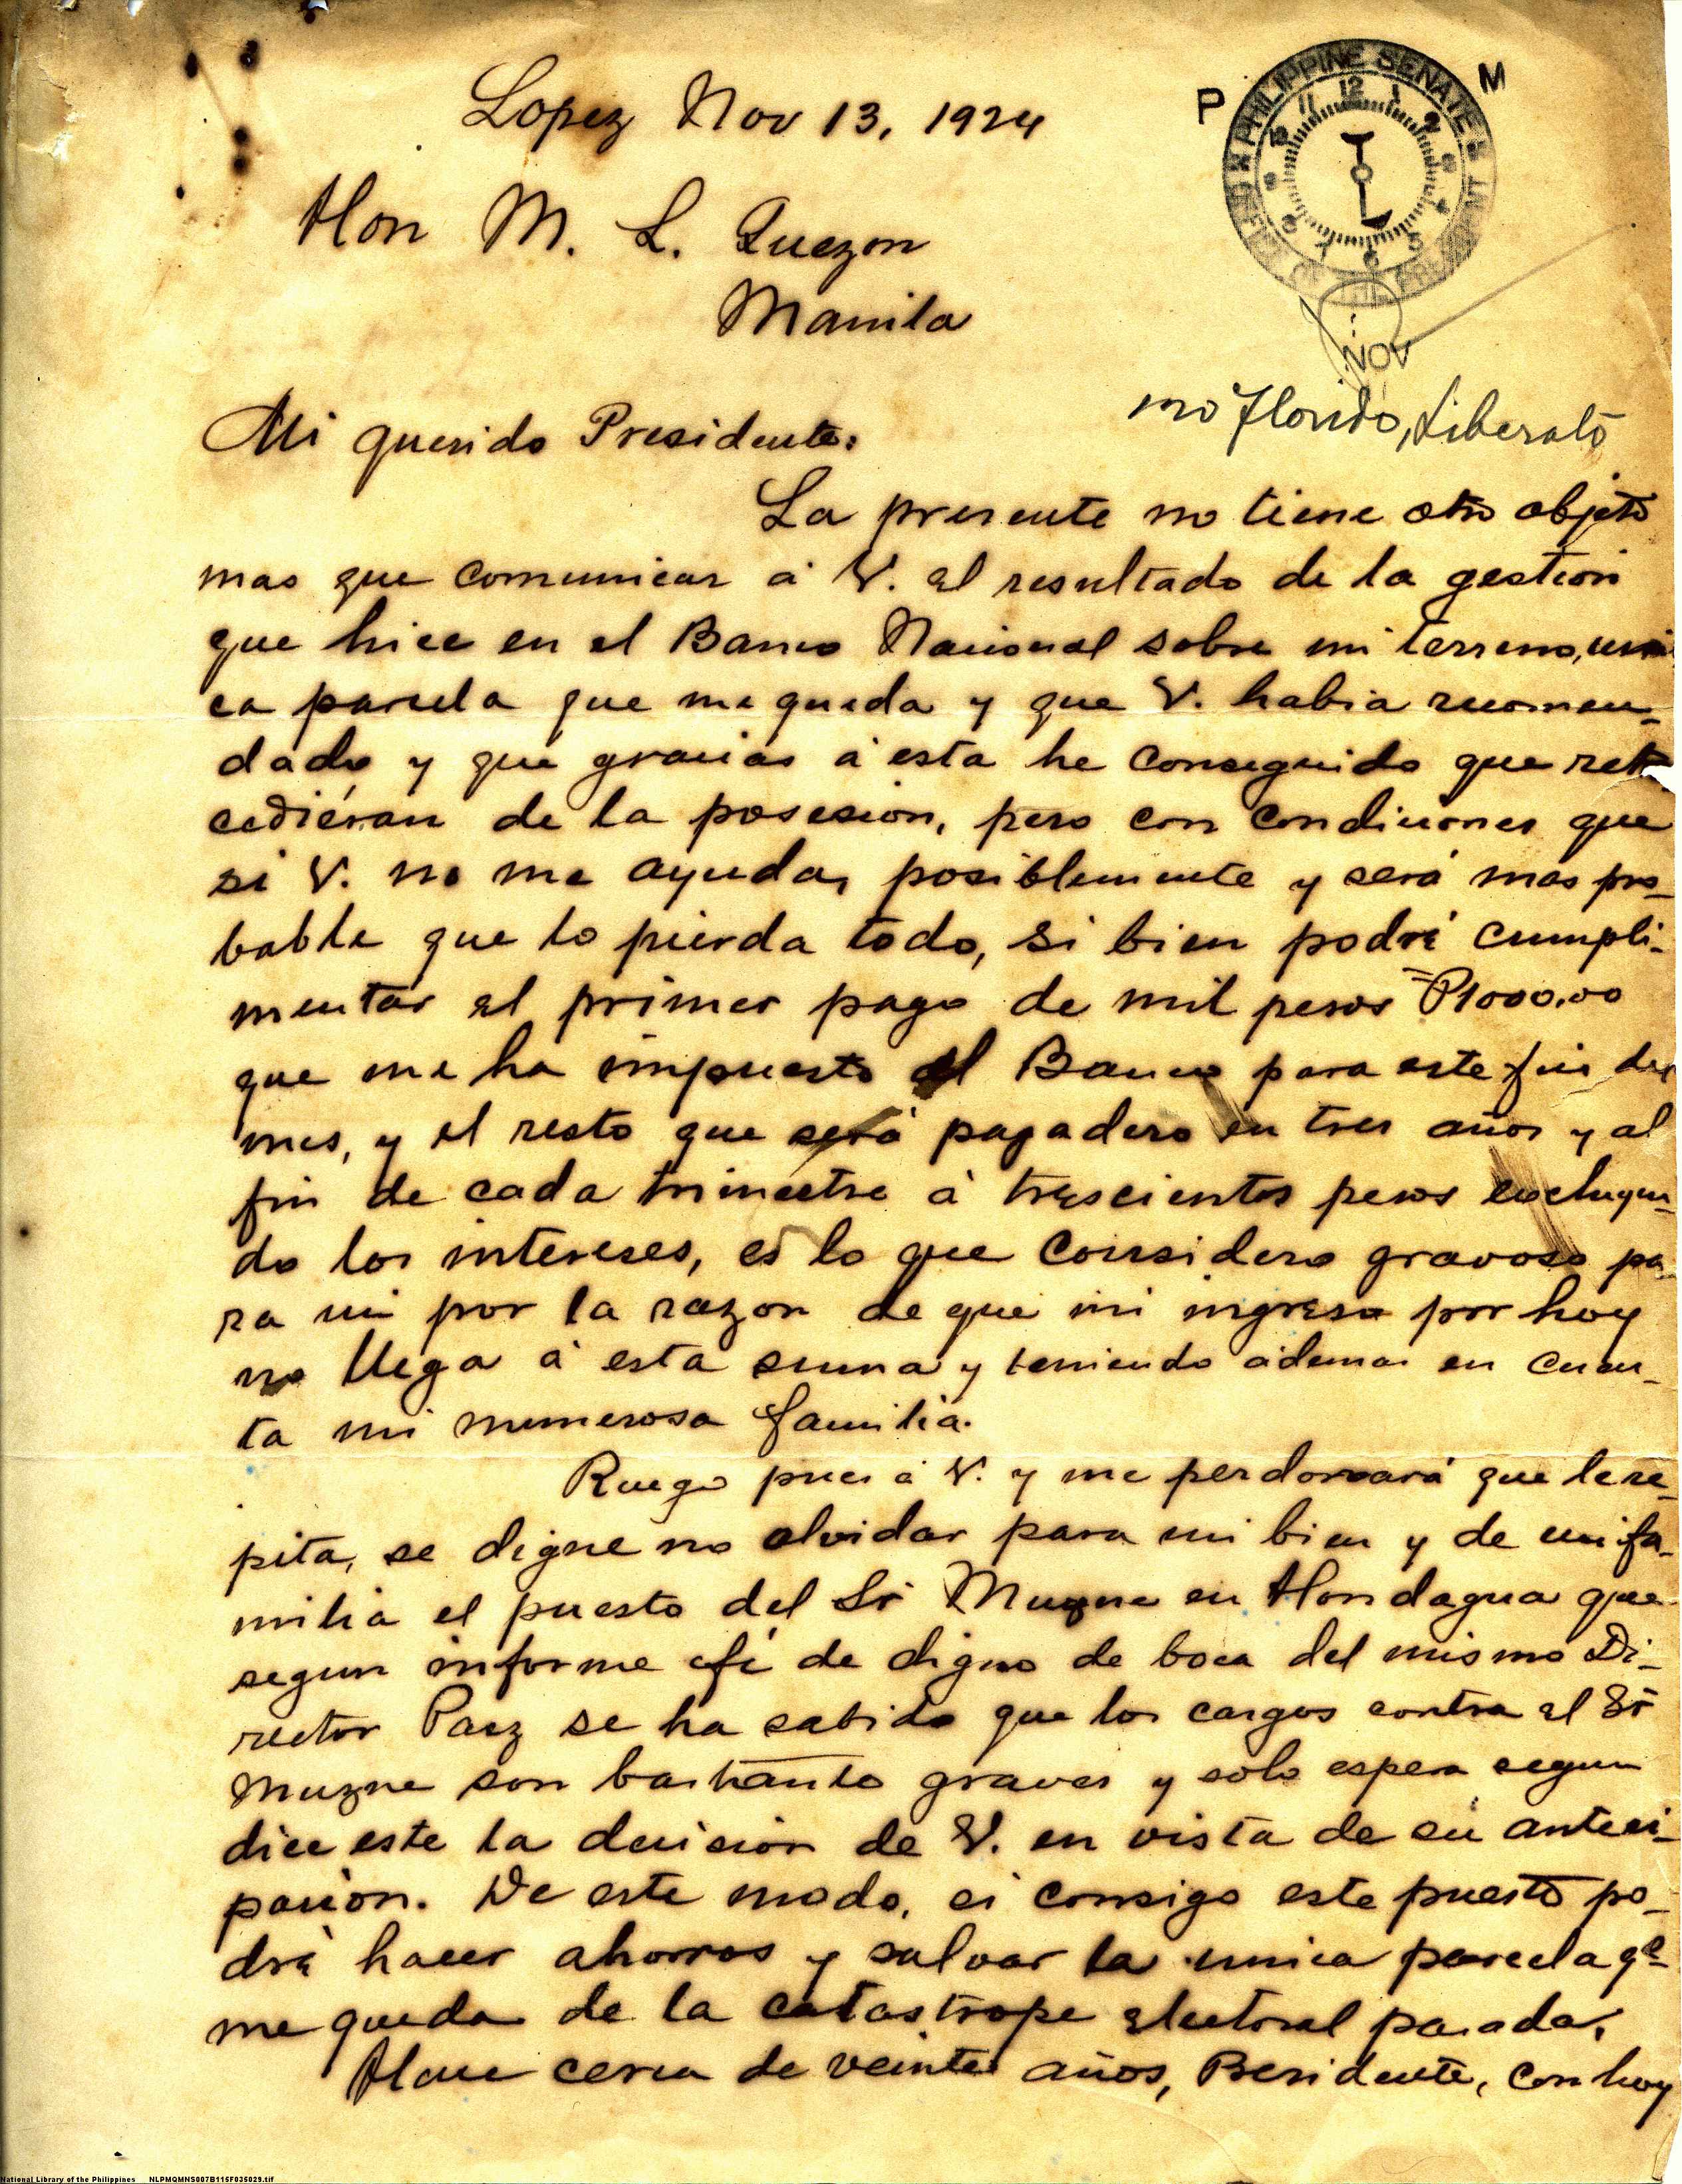 Lopez Nov 13, 1924
P M
PHILIPPINE SENATE
OFFICE OF THE PRESIDENT
NOV
Hon M. L. Quezon
Manila
Florido, Liberato
Mi querido Presidente:
La presente no tiene otro objeto
mas que comunicar á V. el resultado de la gestion
que hice en el Banco Nacional sobre mi terreno, uni
ca parcela que me queda y que V. habia recomen-
dado y que gracias á esta he conseguido que retro
cedieran de la posesion, pero con condiciones que
si V. no me ayuda, posiblemente y será mas pro-
bable que lo pierda todo, si bien podré cumpli-
mentar el primer pago de mil pesos ₱1000.00
que me ha impuesto el Banco para este fin del
mes, y el resto que será pagadero en tres años y al
fin de cada trimestre á trescientos pesos excluyen-
do los intereses, es lo que considero gravoso pa
ra mi por la razon de que mi ingreso por hoy
no llega á esta suma y teniendo ademas en cuen-
ta mi numerosa familia.
Ruego pues á V. y me perdonará que le re-
pita, se digne no olvidar para mi bien y de mi fa-
milia el puesto del Sr Muzne en Hondagua que
segun informe fé de digno de boca del mismo Di-
rector Paez se ha sabido que los cargos contra el Sr
Muzne son bastante graves y solo espera segun
dice este la decision de V. en vista de su antici-
pacion. De este modo, si consigo este puesto po-
dré hacer ahorros y salvar la unica parcela qe
me queda de la catastrope electoral pasada.
Hace cerca de veinte años, Presidente, con hoy
National Library of the Philippines NLPMQMNS007B115F035029.tif